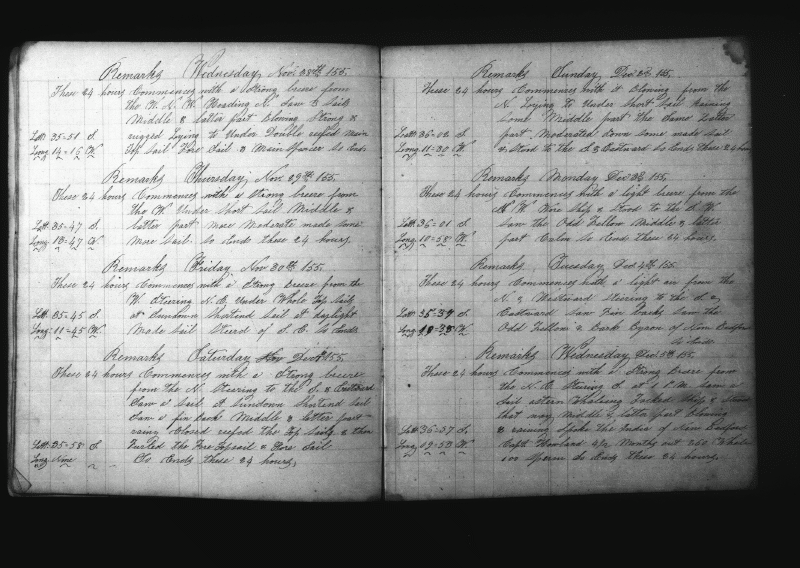 Remarks Wednesday, Nov. 28th 155.
These 24 hours Commences with a Strong breeze from
the W. N. W. Heading N. Saw a Sail
Middle & latter part blowing Strong &
Latt: 35-51 S. rugged Laying to Under Double reefed Main
Long: 14-16 W. Top Sail Fore Sail & Main Spencer So Ends.
Remarks Thursday, Nov. 29th 155.
These 24 hours Commences with a Strong breeze from
the W. Under Short Sail Middle &
Latt: 35-47 S. latter part more Moderate made some
Long: 13-47 W. More Sail. So Ends these 24 hours.
Remarks Friday, Nov 30th 155.
These 24 hours Commences with a Strong breeze from the
W. Steering N. E. Under Whole Top Sails
Latt: 35-45 S. at Sundown Shortend Sail at daylight
Long: 11-45 W. Made Sail Steerd of S. E. So Ends
Remarks Saturday Nov Dec 1st 155.
These 24 hours Commences with a Strong breeze
from the N. Stearing to the S. & Eastward
Saw a Sail. At Sundown Shortend Sail
Saw a fin back Middle & latter part
rainy Closed reefed the Top Sails & then
Latt: 35-58 S. Furled the Fore Topsail & Fore Sail
Long None So Ends these 24 hours.
Remarks Sunday Dec 2d 155.
These 24 hours Commences with it Blowing from the
N. Laying to Under Short Sail raining
some Middle part the Same Latter
Latt: 36-02 S. part Moderated down some made Sail
Long 11-20 W. & Stood to the S. & Eastward So Ends these 24 hours
Remarks Monday Dec 3d 155.
These 24 hours Commences with a light breeze from the
W. Wore Ship & Stood to the N. W.
Latt: 36-01 S. Saw the Odd Fellow Middle & latter
Long 10-58 W. part Calm So Ends these 24 hours.
Remarks Tuesday Dec 4th 155.
These 24 hours Commences with a light air from the
N. & Westward Steering to the S. &
Latt: 35-59 S. Eastward saw Fin backs Saw the
Long W. Odd Fellow & Bark Cyron of New Bedford
So Ends
Remarks Wednesday, Dec 5th 155.
These 24 hours Commences with a Strong breeze from
the N. E. Stearing S. at 1 P.M. Saw a
Sail astern Whaleing Tacked Ship &
that way Middle & latter part blowing
Latt: 36-37 S. & raining Spoke the India of New Bedford
Long 09-53 W. Capt Howland 4 1/2 Months out 260 Whale
100 Sperm So Ends these 24 hours,